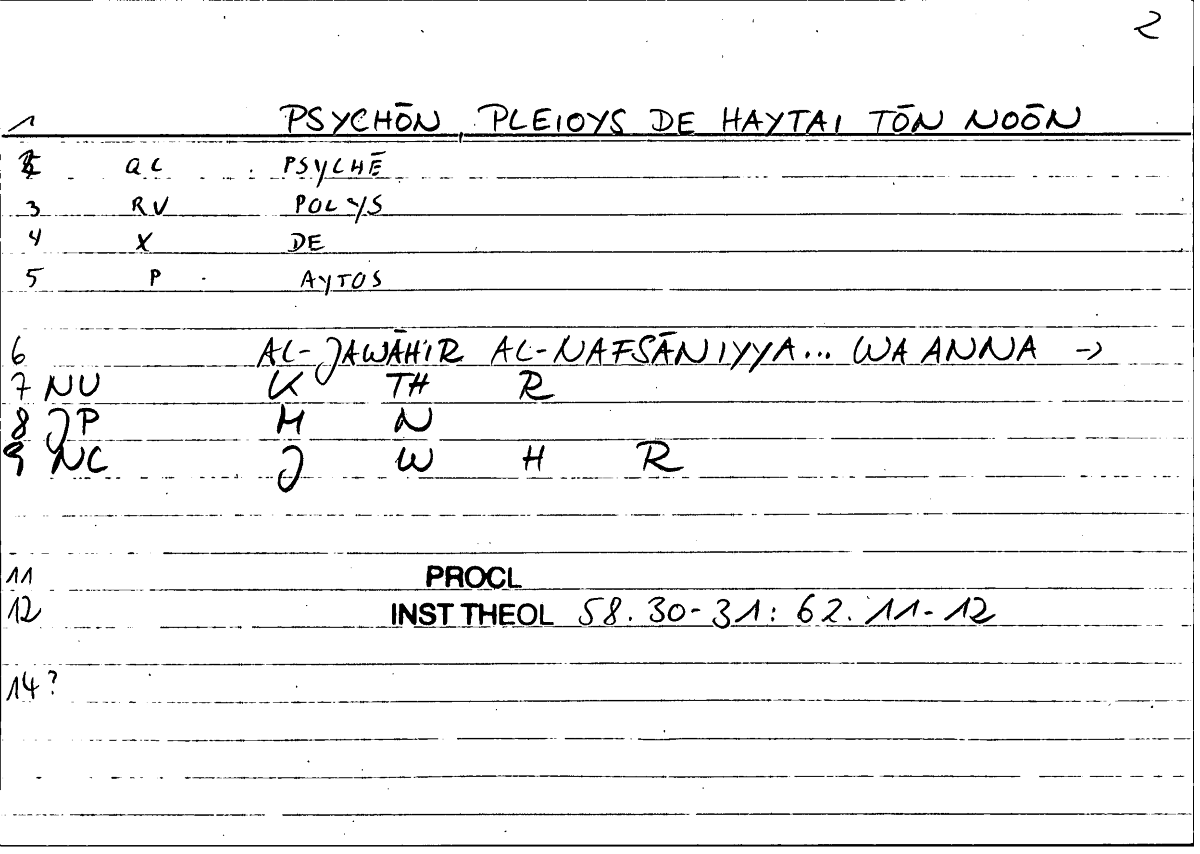 2
1 PSYCHŌN, PLEIOYS DE HAYTAI TŌN NOŌN
2 QC PSYCHĒ
3 RV POLYS
4 X DE
5 P AYTOS
6 AL-JAWĀHIR AL-NAFSĀNIYYA... WA ANNA →
7 NU K TH R
8 JP M N
9 NC J W H R
11 PROCL
12 INST THEOL 58.30-31: 62.11-12
14?